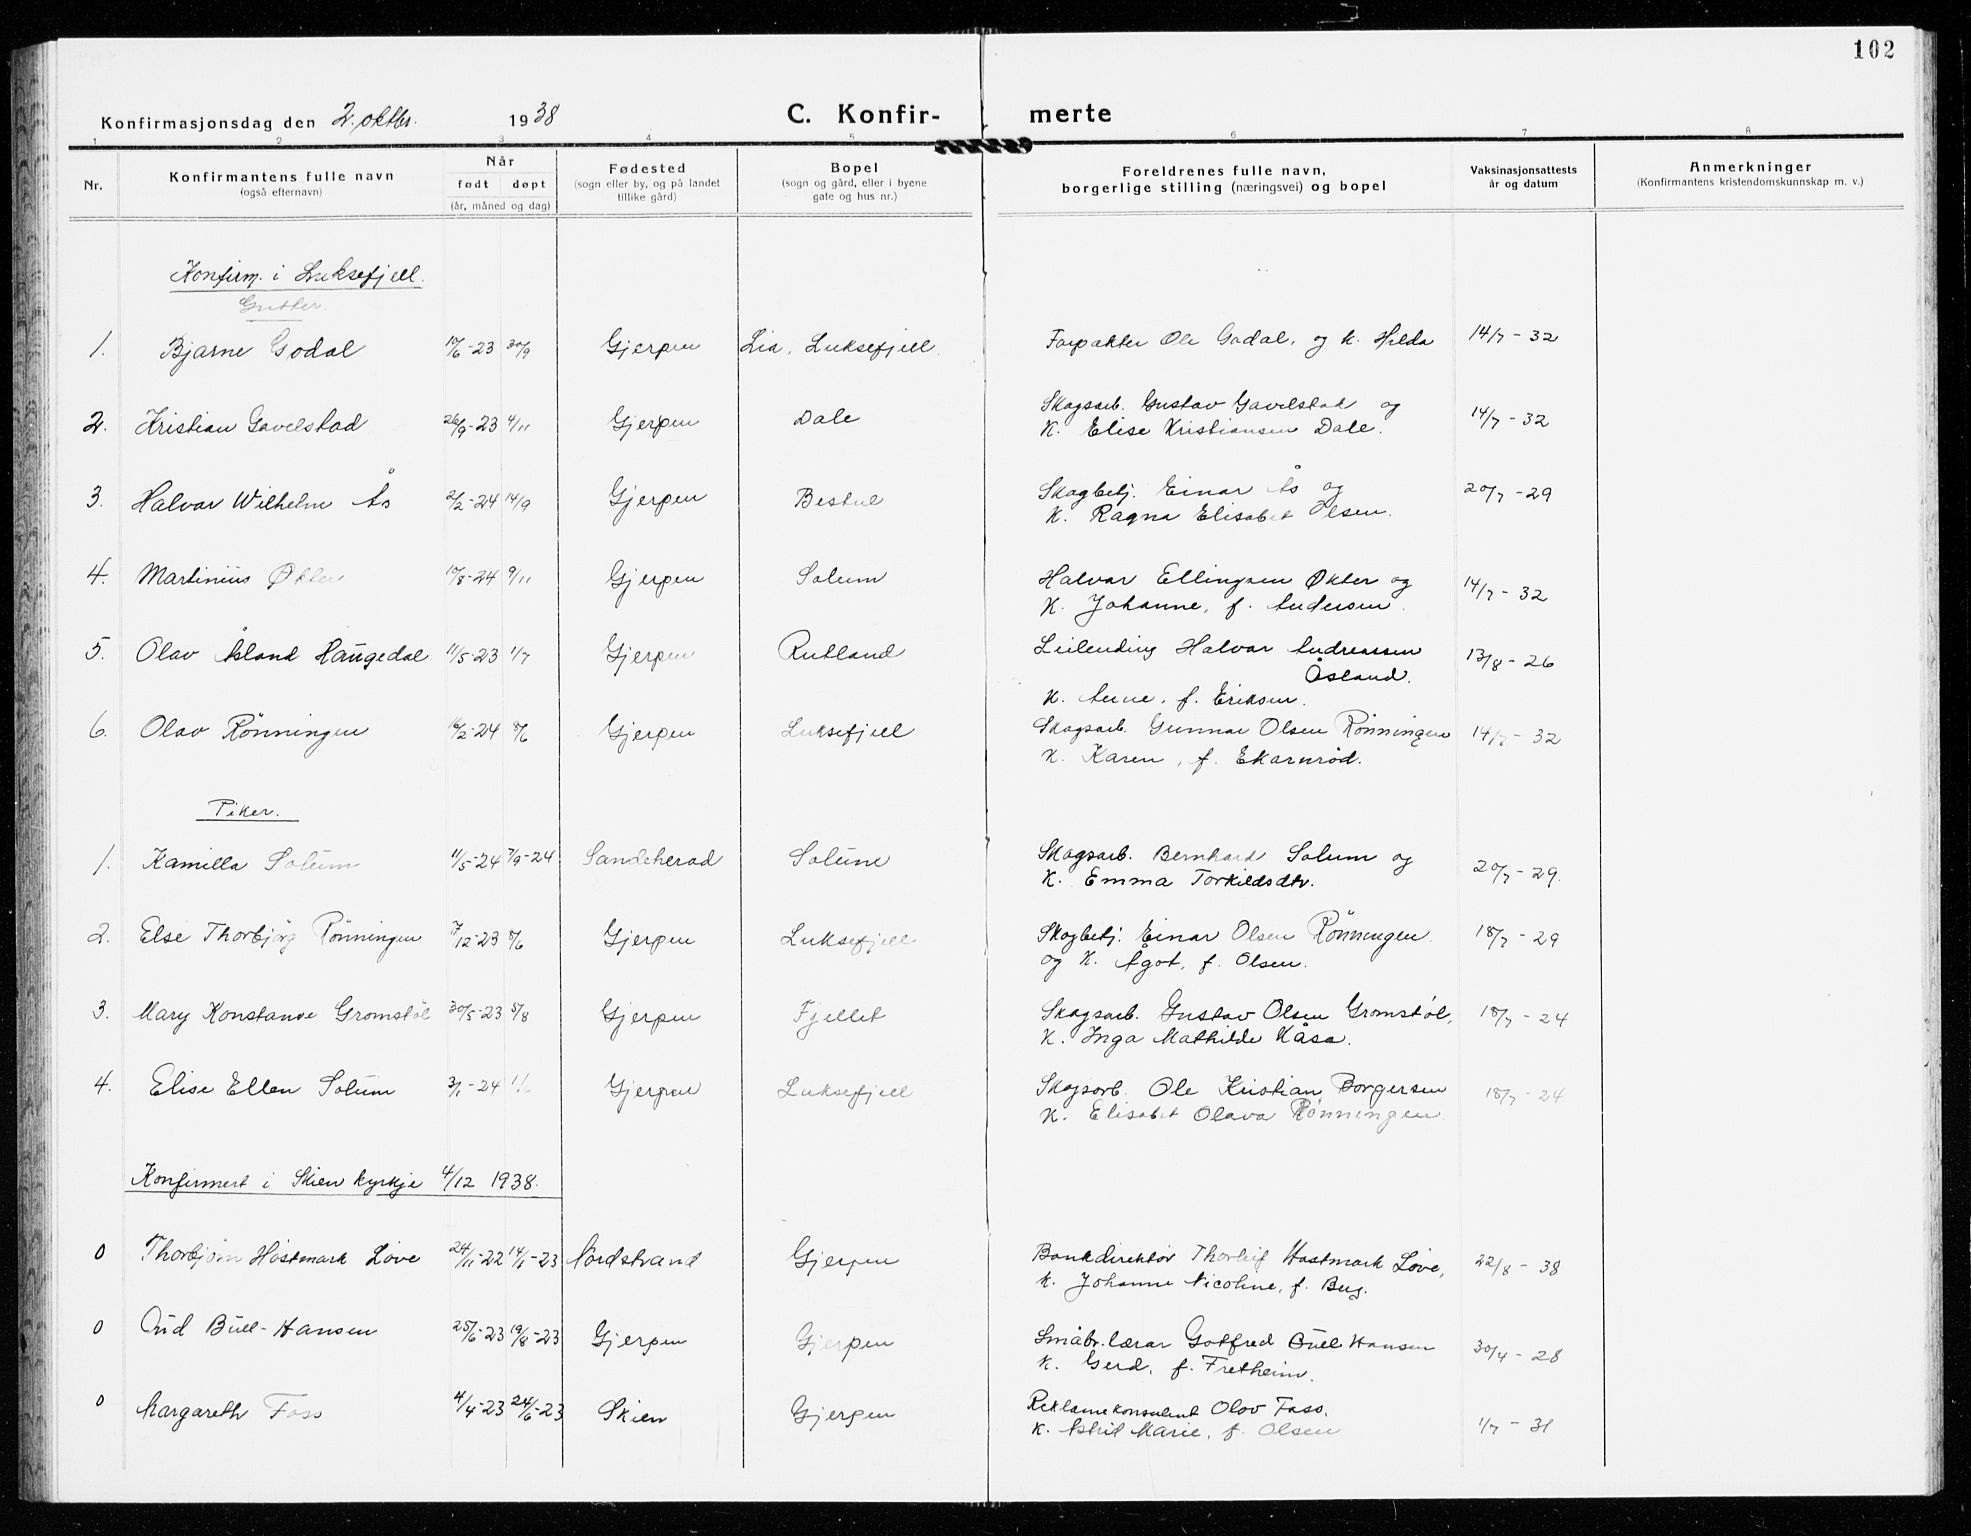 102
Konfirmasjonsdag den 2. oktbr. 1938 C. Konfir- merte
1 2 3 4 5 6 7 8
Nr. Konfirmantens fulle navn (også efternavn) Når født døpt (år, måned og dag) Fødested (sogn eller by, og på landet tillike gård) Bopel (sogn og gård, eller i byene gate og hus nr.) Foreldrenes fulle navn, borgerlige stilling (næringsvei) og bopel Vaksinasjonsattests år og datum Anmerkninger (Konfirmantens kristendomskunnskap m. v.)
Konfirm. i Luksefjell.
Gutter.
1. Bjarne Godal 17/6-23 30/9 Gjerpen Lia, Luksefjell. Forpakter Ole Godal, og k. Hilda 14/7-32
2. Kristian Gavelstad 26/9-23 4/11 Gjerpen Dale Skogsarb. Gustav Gavelstad og 14/7-32
K. Elise Kristiansen Dale.
3. Halvar Wilhelm Ås 2/2-24 14/9 Gjerpen Bestul Skogbetj. Einar Ås og 20/7-29
K. Ragna Elisabet Olsen.
4. Martinius Økter 10/8-24 9/11 Gjerpen Solum Halvar Ellingsen Økter og 14/7-32
K. Johanne, f. Andersen.
5. Olav Åsland Haugedal 11/5-23 1/7 Gjerpen Rutland Leilending Halvar Andreassen 13/8-26
Åsland.
K. Anne, f. Eriksen.
6. Olav Rönningen 16/2-24 8/6 Gjerpen Luksefjell Skogsarb. Gunnar Olsen Rönningen 14/7-32
K. Karen, f. Ekornrød.
Piker.
1. Kamilla Solum 11/5-24 7/9-24 Sandeherad Solum Skogsarb. Bernhard Solum og 20/7-29.
K. Emma Torkildsdtr.
2. Else Thorbjörg Rönningen 7/12-23 8/6 Gjerpen Luksefjell Skogbetj. Einar Olsen Rönningen. 18/7-29
og K. Ågot, f. Olsen.
3. Mary Konstanse Gromstøl 30/5-23 5/8 Gjerpen Fjellet Skogsarb. Gustav Olsen Gromstøl, 18/7-24
K. Inga Mathilde Kåsa.
4. Elise Ellen Solum 3/1-24 Gjerpen Luksefjell Skogsarb. Ole Kristian Borgersen 18/7-24
K. Elisabet Olava Rönningen
Konfirmert i Skien kyrkje 4/12 1938.
0 Thorbjørn Høstmark Løve 24/11-22 14/1-23 Nordstrand Gjerpen Bankdirektör Thorleif Høstmark Løve, 22/8-38
K. Johanne Nicoline, f. Bug.
0 Aud Bull-Hansen 25/6-23 19/8-23 Gjerpen Gjerpen Småbr.lærar Gotfred Bull Hansen 30/4-28
K. Gerd, f. Fretheim.
0 Margareth Foss 4/4-23 24/6-23 Skien Gjerpen Reklamekonsulent Olav Foss, 1/7-31
K. Astrid Marie, f. Olsen